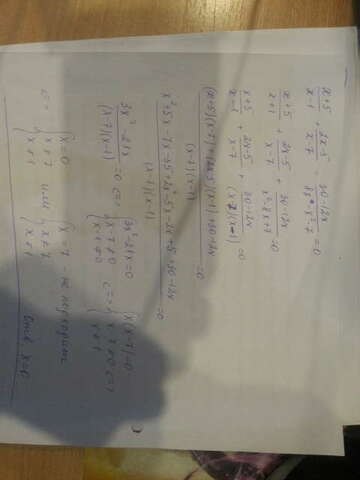 x+5/x-1 + 2x-5/x-7 - 30-12x/8x-x²-7 = 0
x+5/x+1 + 2x-5/x-7 + 30-12x/x²-8x+7 = 0
x+5/x-1 + 2x-5/x-7 + 30-12x/(x-7)(x-1) = 0
(x+5)(x-7)+(2x-5)(x-1)+30-12x/(x-7)(x-1) = 0
x²+5x-7x-35+2x²-5x-2x+5+30-12x/(x-7)(x-1) = 0
3x²-21x/(x-7)(x-1) = 0 <=> { 3x²-21x=0 x-7≠0 x-1≠0 <=> { x(x-7)=0 x≠7 x≠1 <=>
<=> { x=0 x≠7 x≠1 или { x=7 - не подходит x≠7 x≠1
x=0